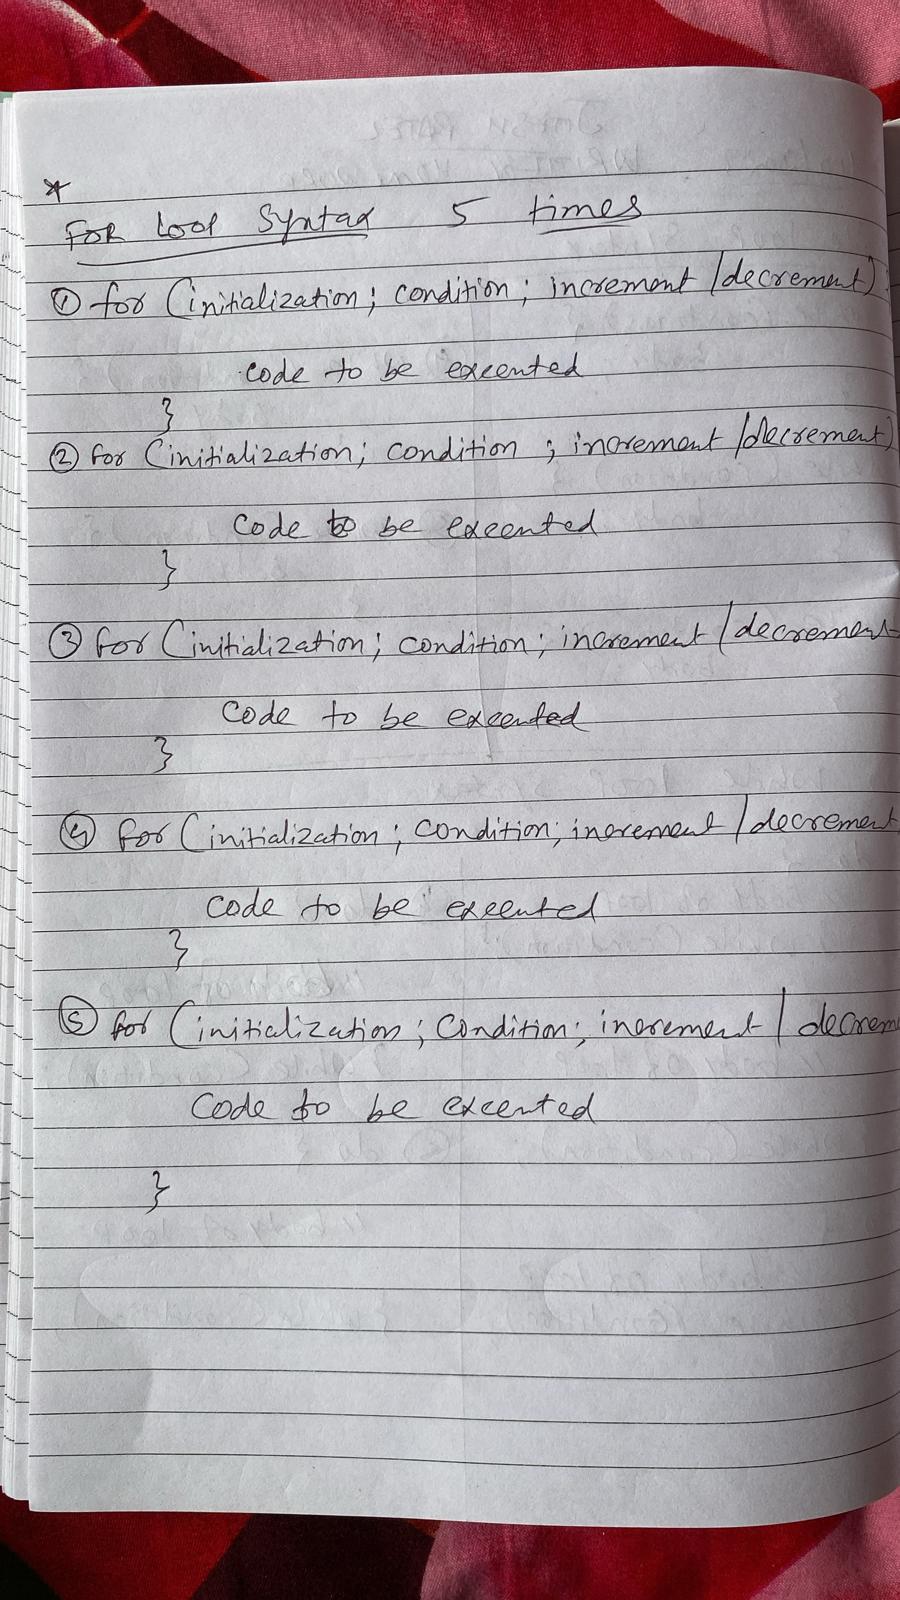 *
For Loop Syntax 5 times
① for (initialization; condition; increment/decrement)
code to be executed
}
② for (initialization; condition ; increment/decrement)
code to be executed
}
③ for (initialization; condition; increment/decrement
code to be executed
}
④ for (initialization; condition; increment/decrement
code to be executed
}
⑤ for (initialization; condition; increment/decrem
code to be executed
}